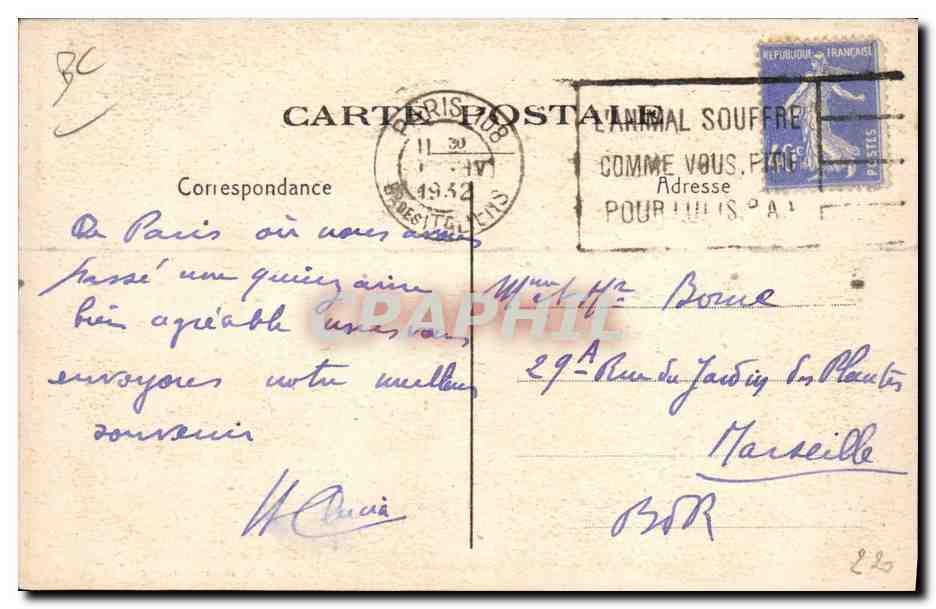 BC
RÉPUBLIQUE FRANÇAISE
40c
POSTES
CARTE POSTALE
PARIS 108
11 30
IV
1932
Bd DES ITALIENS
L'ANIMAL SOUFFRE
COMME VOUS.
POUR LUI S.P.A.
Correspondance
Adresse
De Paris où nous avons
passé une quinzaine
bien agréable nous vous
envoyons notre meilleur
souvenir
Mme et Mr Borne
29A Rue du Jardin des Plantes
Marseille
BdR
CPAPHIL
220